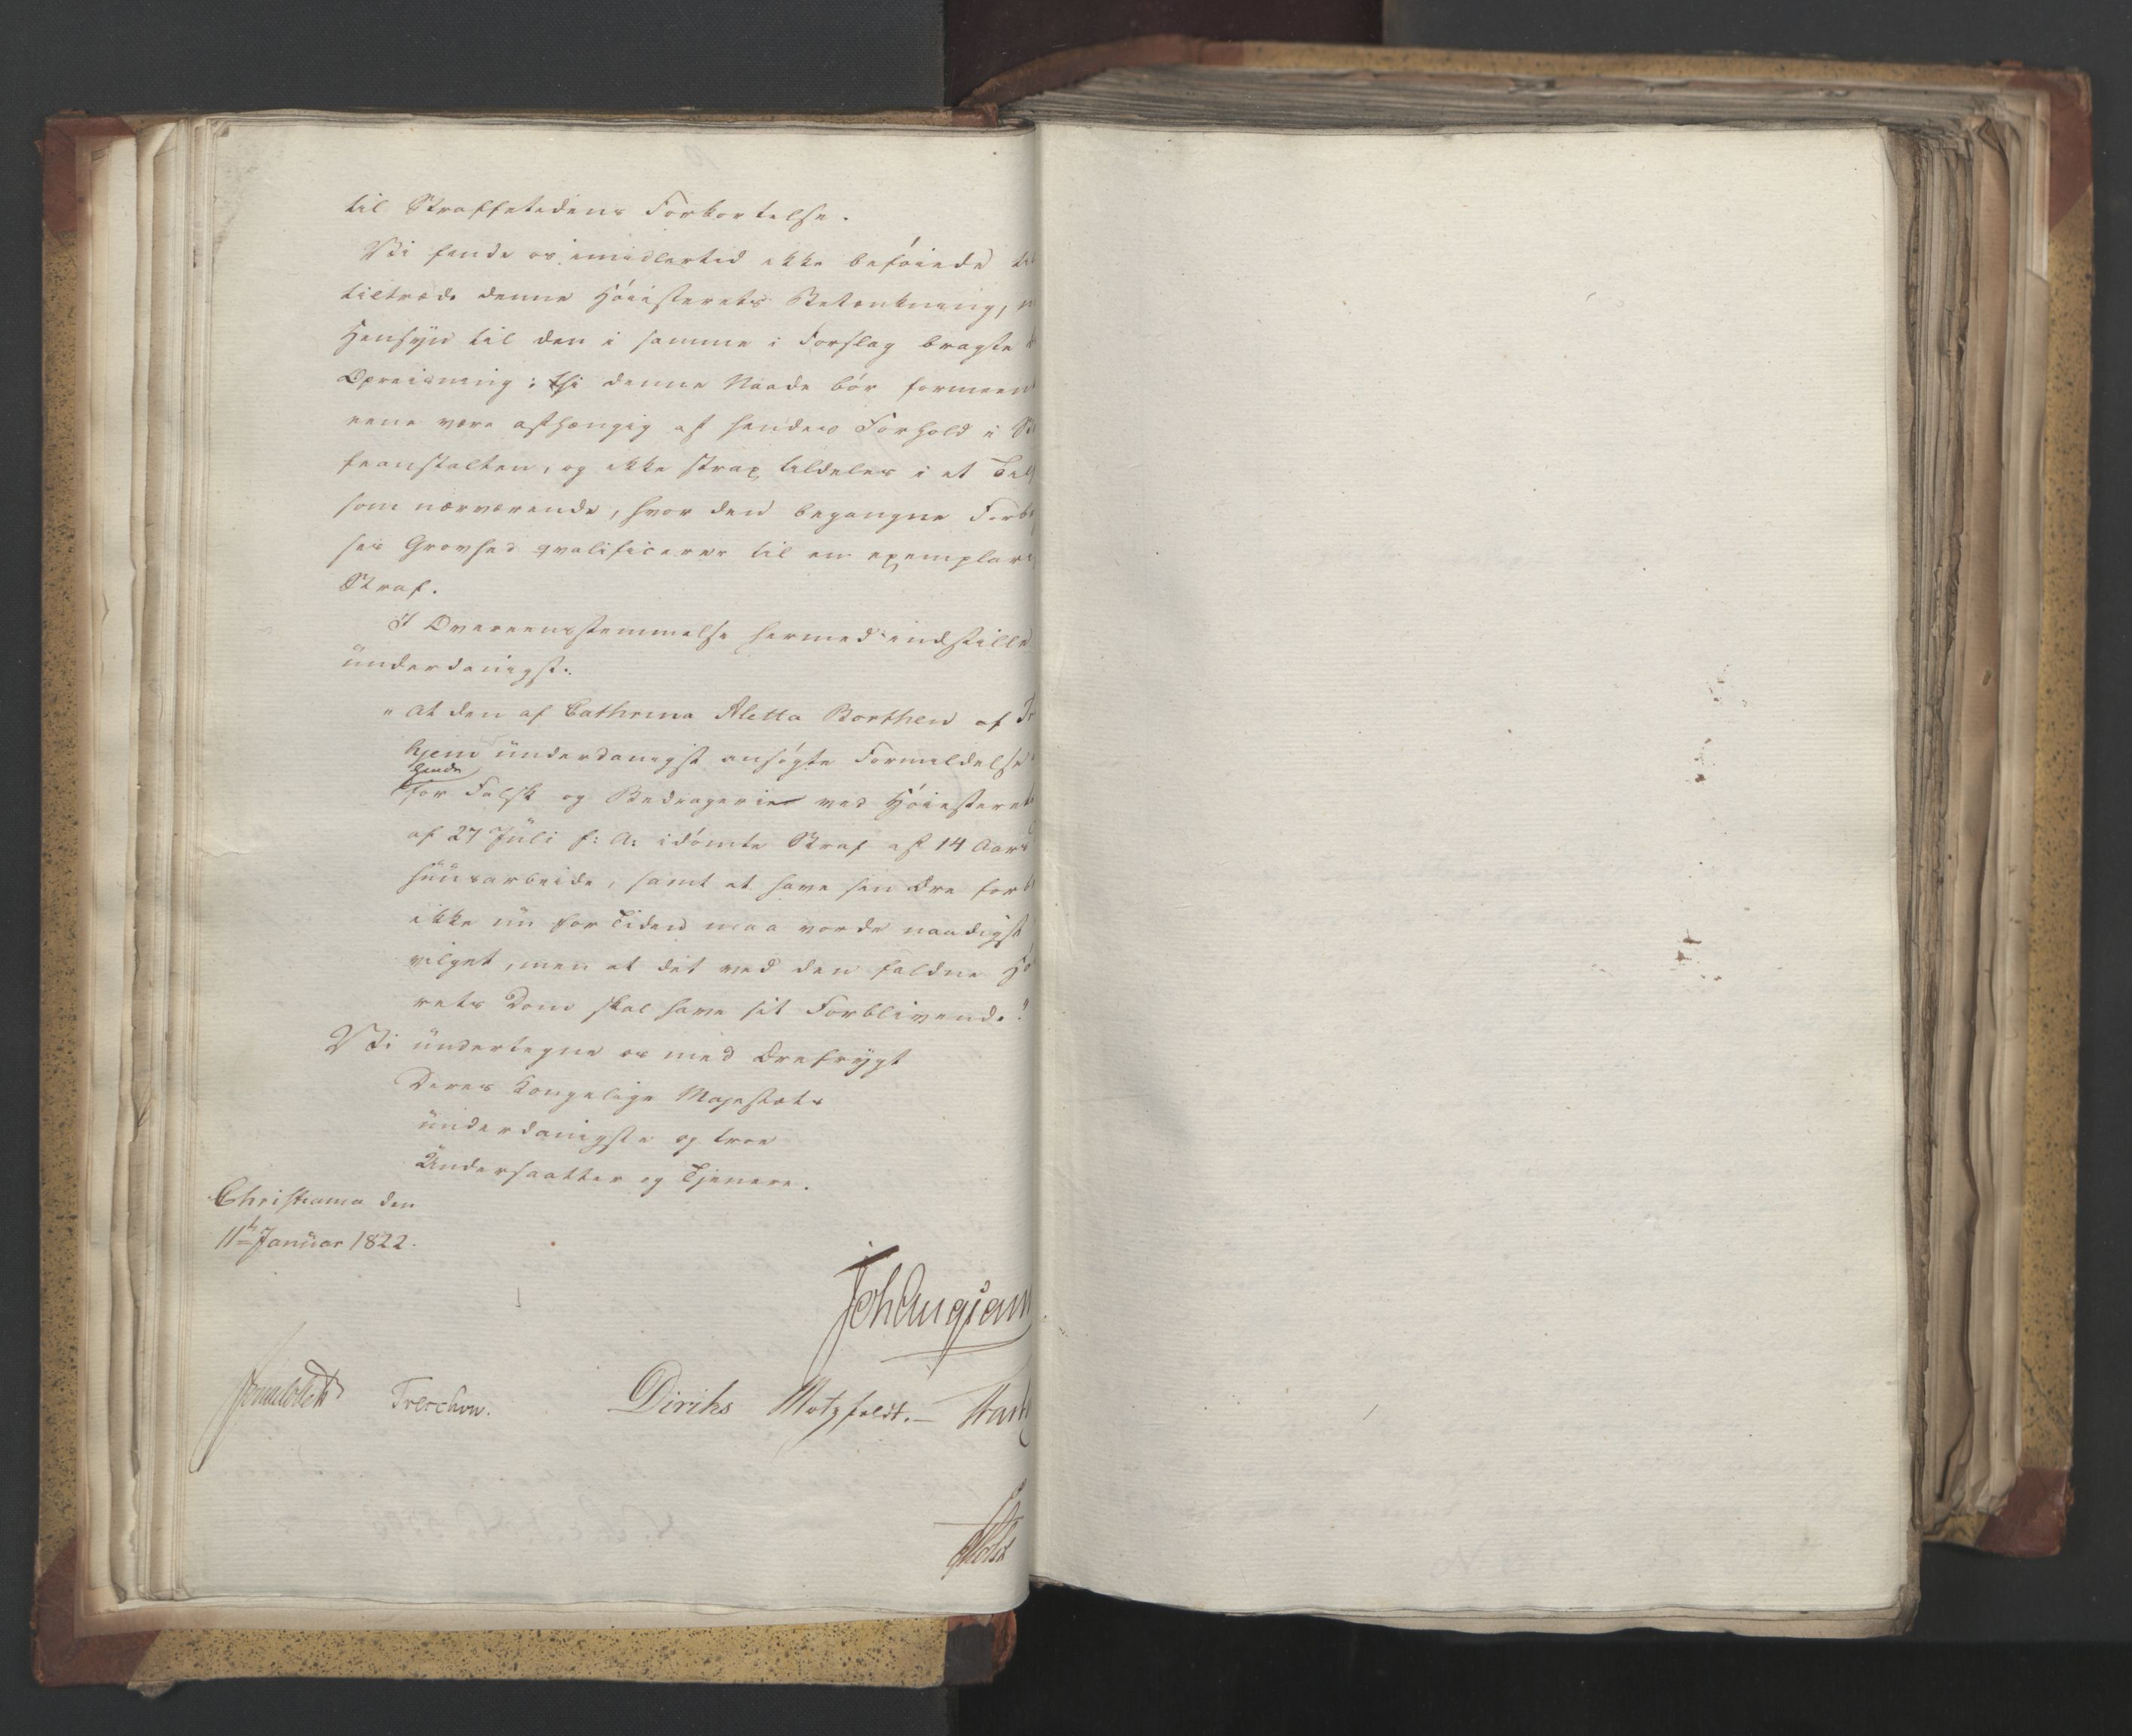 til Straffetidens Forkortelse.
Vi finde os imidlertid ikke beföiede
tiltræde denne Höiesterets Betænkning,
Hensyn til den i samme i Forslag bragte
Opreisning; thi denne Naade bör formeent
eene være afhængig af hendes Forhold i
feanstalten, og ikke strax tildeles i et
som nærværende, hvor den begangne
ses Grovhed qvalificerer til en
Straf.
I Overeensstemmelse hermed indstille
underdanigst.
"at den af Cathrina Aletta Borthen af
hjem underdanigst ansögte Formildelse
hende
for Falsk og Bedragerie ved
af 27 Juli f: A: idömte Straf af 14 Aars
huusarbeide, samt at have sin Ære
ikke nu for Tiden maa vorde naadigst
vilget, men at det ved den faldne
rets Dom skal have sit Forblivende."
Vi undertegne os med Ærefrygt
Deres Kongelige Majestæts
underdanigste og troe
Undersaatter og Tjenere.
Christiania den
11te Januar 1822.
Treschow.
Diriks Motzfeldt.
Holst